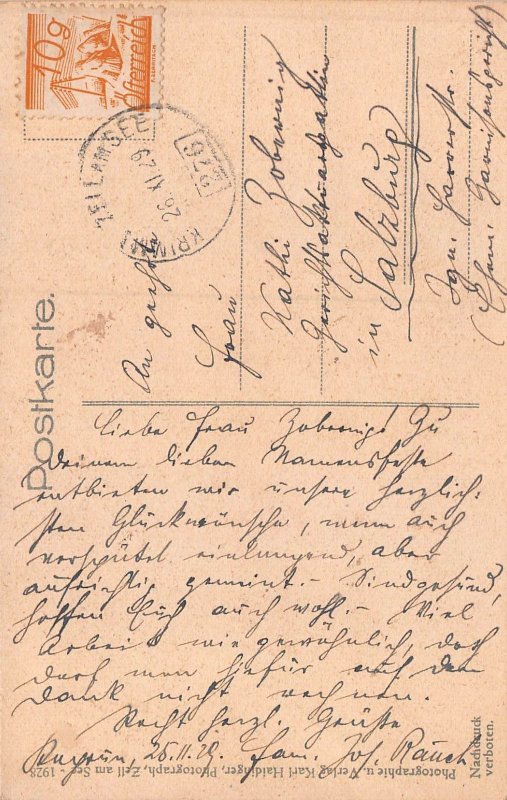 10g
Österreich
ZELL AM SEE
KRIMML
26 XI 29
226
Postkarte.
An geehrte
Frau
Kathi Zobernig
in Salzburg
Ign. Harrerstr.
(Ehem. Garnisonsgericht)
Liebe Frau Zobernig! Zu
Deinem lieben Namensfeste
entbieten wir unsere herzlich-
sten Glückwünsche, wenn auch
verspätet einlangend, aber
aufrichtig gemeint. - Sind gesund,
hoffen Euch auch wohl. - Viel
Arbeit wie gewöhnlich, doch
darf man hiefür auf den
Dank nicht rechnen.
Recht herzl. Grüße
26.11.29. Fam. Jos. Rauch
Photographie u. Verlag Karl Haidinger, Photograph, Zell am See - 1928
Nachdruck
verboten.